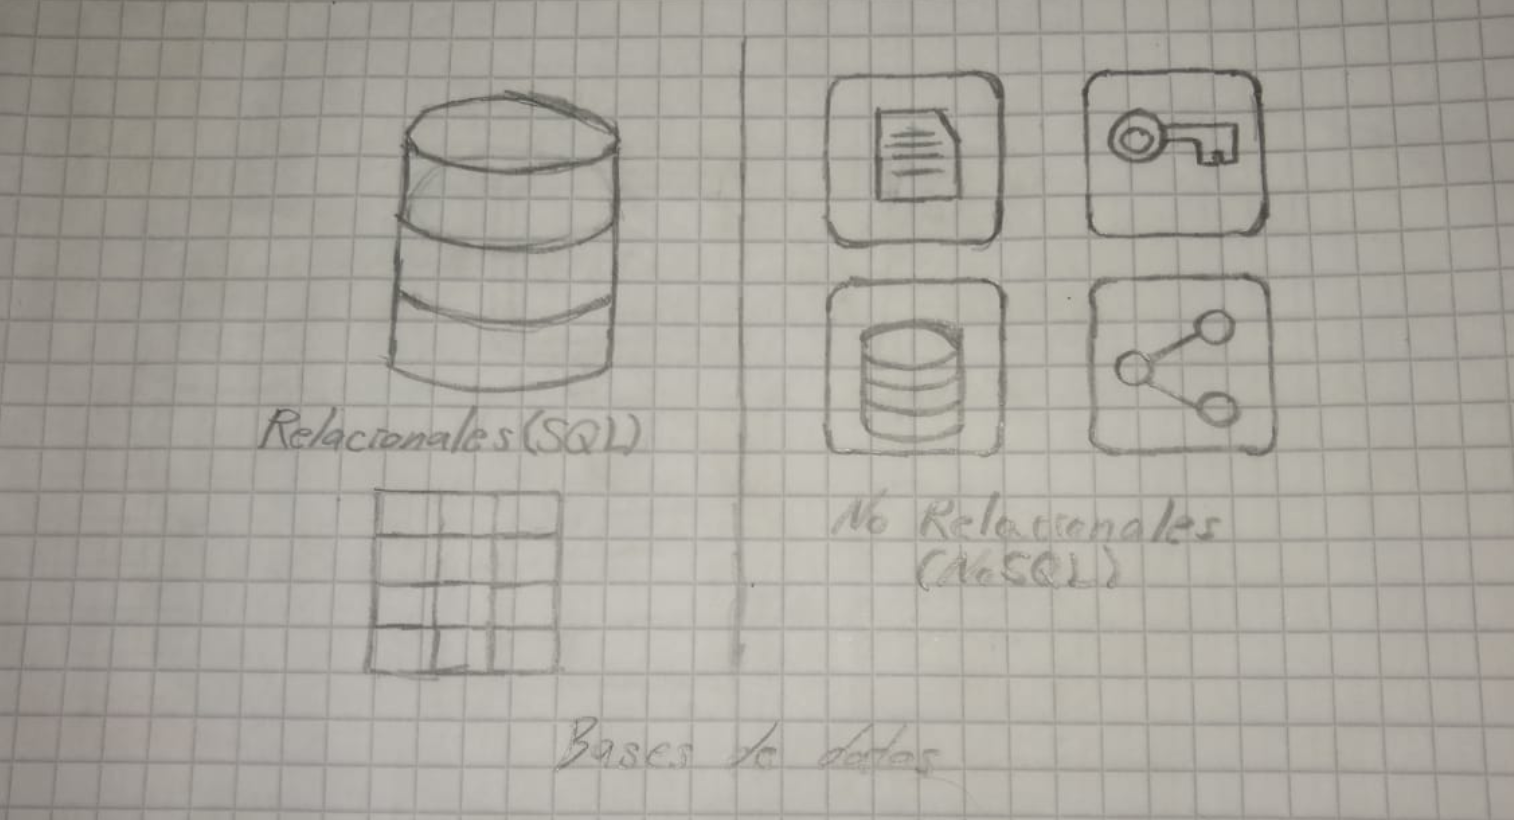 Relacionales (SQL)
No Relacionales
(NoSQL)
Bases de datos